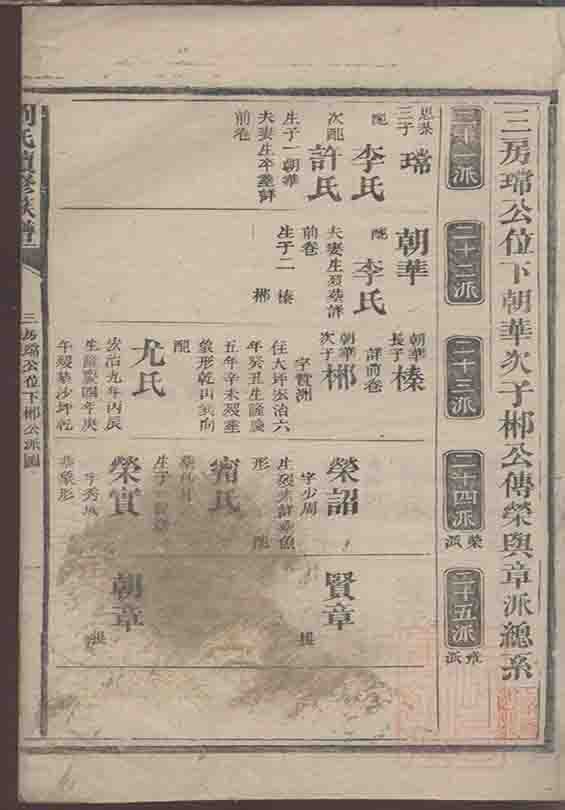 三房瑺公位下朝華次子郴公傳榮與章派總系
二十一派
二十二派
二十三派
二十四派
榮派
二十五派
章派
三子
瑺
配
李氏
次配
許氏
生子一朝華
夫妻生卒葬詳
前卷
朝華
配
李氏
夫妻生歿葬詳
前卷
生子二 榛 郴
朝華
長子
榛
詳前卷
朝華
次子
郴
字賛洲
住大坪弘治六
年癸丑生隆慶
五年辛未歿葬
象形乾山巽向
配
尤氏
弘治九年丙辰
生隆慶四年庚
午歿葬沙坪乾
榮詔
字少周
生歿未詳葬魚
形
配
甯氏
生子一
榮實
字秀
象形
賢章
朝章
三房瑺公位下郴公派圖